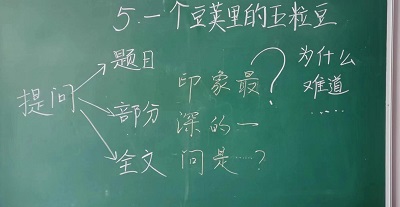 5.一个豆荚里的五粒豆
提问
题目
部分
全文
印象最
深的一
问是……?
?
为什么
难道
……